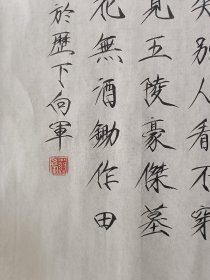 笑别人看不穿
見五陵豪傑墓
花無酒鋤作田
於歷下向軍